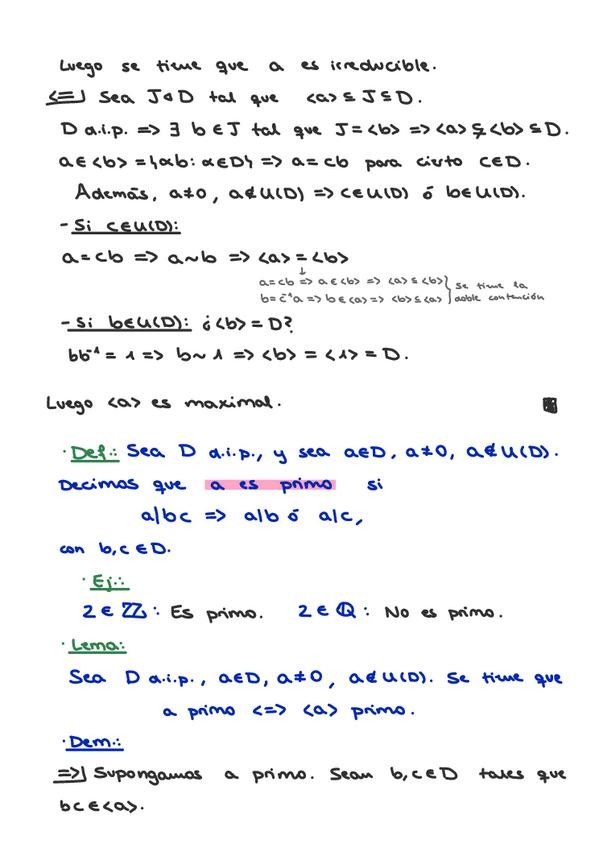 Luego se tiene que a es irreducible.
<=| Sea J◁D tal que <a> ⊆ J ⊆ D.
D d.i.p. => ∃ b ∈ J tal que J = <b> => <a> ⊊ <b> ⊆ D.
a ∈ <b> = {αb : α ∈ D} => a = cb para cierto c ∈ D.
Además, a ≠ 0, a ∉ U(D) => c ∈ U(D) ó b ∈ U(D).
- Si c ∈ U(D):
a = cb => a ~ b => <a> = <b>
↓
a = cb => a ∈ <b> => <a> ⊆ <b> } se tiene la
b = c⁻¹a => b ∈ <a> => <b> ⊆ <a> } doble contención
- Si b ∈ U(D): ¿<b> = D?
bb⁻¹ = 1 => b ~ 1 => <b> = <1> = D.
Luego <a> es maximal.
· Def.: Sea D d.i.p., y sea a ∈ D, a ≠ 0, a ∉ U(D).
Decimos que a es primo si
a/bc => a/b ó a/c,
con b, c ∈ D.
· Ej.:
2 ∈ ℤ : Es primo. 2 ∈ ℚ : No es primo.
· Lema:
Sea D d.i.p., a ∈ D, a ≠ 0, a ∉ U(D). Se tiene que
a primo <=> <a> primo.
· Dem.:
=>| Supongamos a primo. Sean b, c ∈ D tales que
bc ∈ <a>.